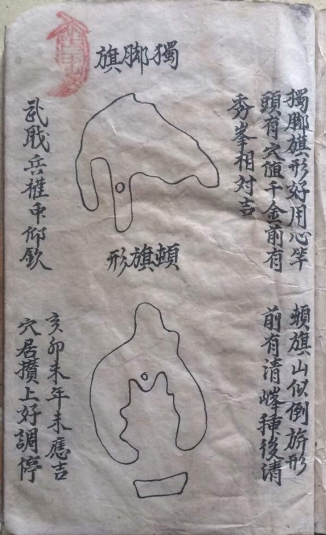 獨脚旗
獨脚旗形好用心竿
頭有穴值千金前有
秀峯相对吉
武戝兵權事仰欽
頓旗形
頓旗山似倒旂形
前有清峰種後清
亥卯未年未應吉
穴居攢上好調停